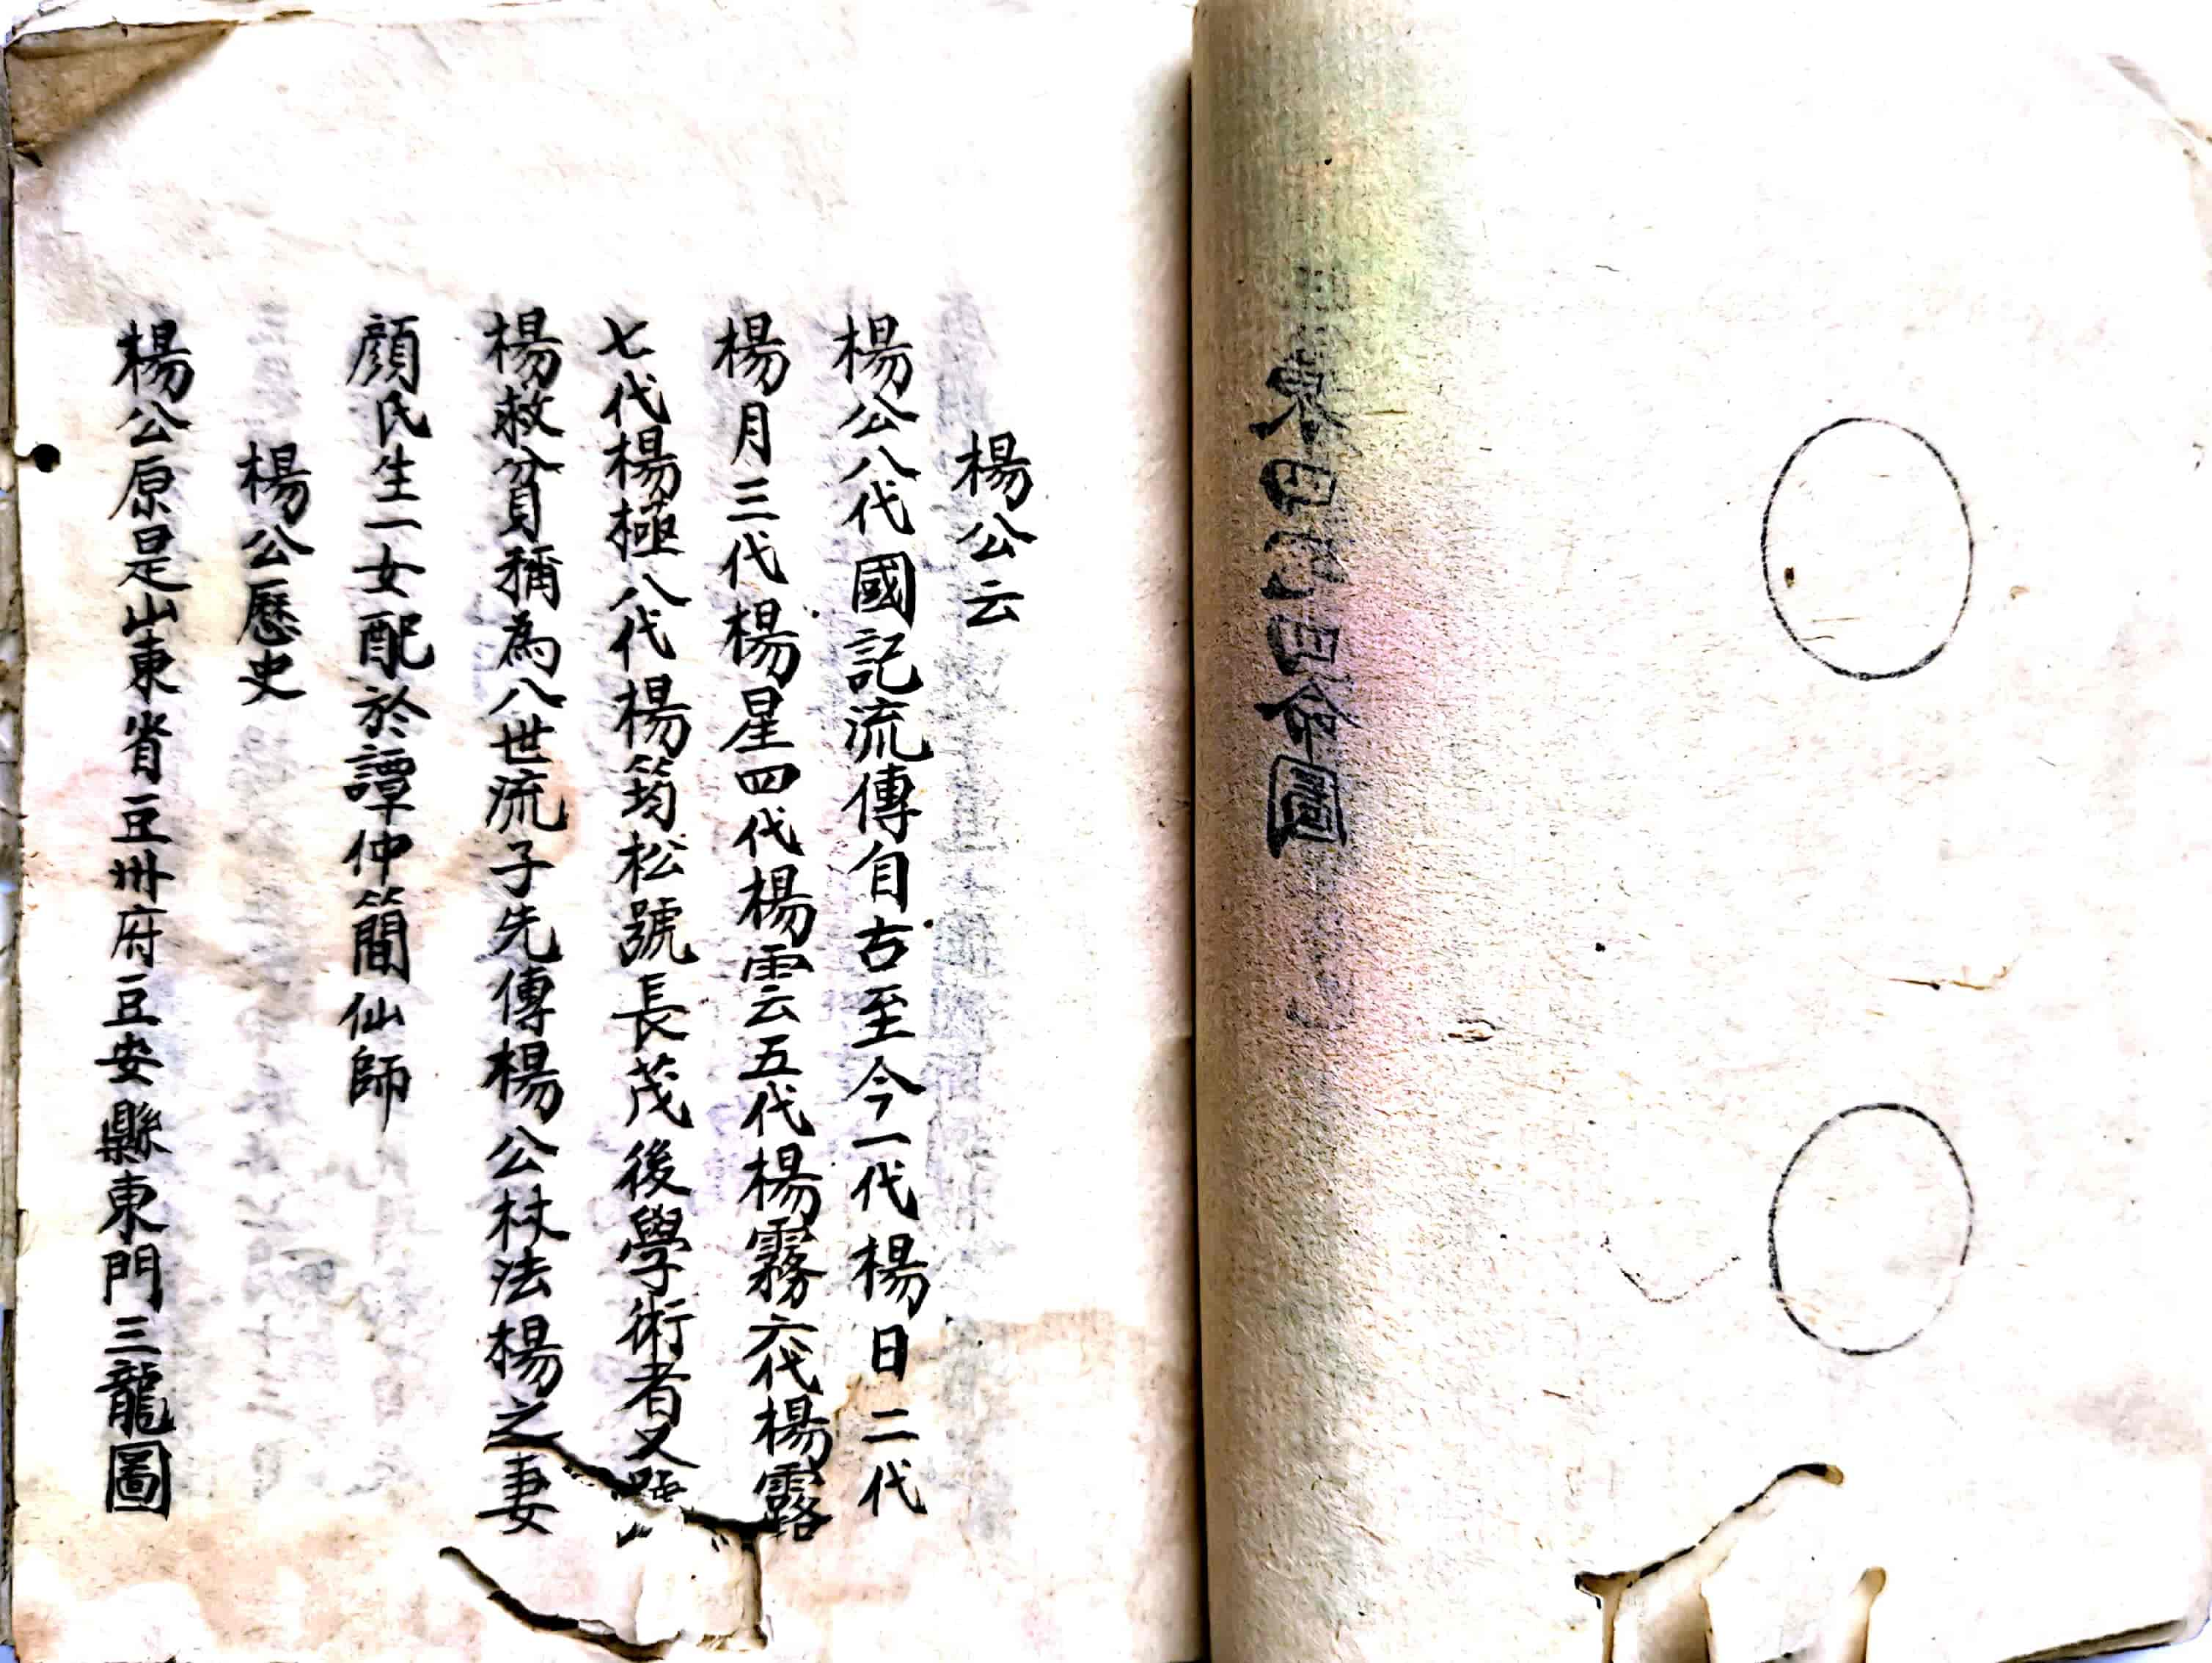 東四西四命圖
楊公云
楊公八代國記流傳自古至今一代楊日二代
楊月三代楊星四代楊雲五代楊霧六代楊露
七代楊極八代楊筠松號長茂後學術者又
楊救貧稱為八世流子先傳楊公杖法楊之妻
顏氏生一女配於譚仲簡仙師
楊公歷史
楊公原是山東省豆州府豆安縣東門三龍圖